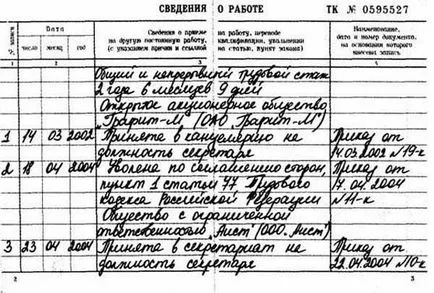 СВЕДЕНИЯ О РАБОТЕ
ТК № 0595527
№ записи
Дата
число
месяц
год
Сведения о приеме на работу, переводе
на другую постоянную работу, квалификации, увольнении
(с указанием причин и ссылкой на статью, пункт закона)
Наименование,
дата и номер документа,
на основании которого
внесена запись
1
2
3
4
Общий и непрерывный трудовой стаж
2 года 8 месяцев 9 дней
Открытое акционерное общество
"Гранит-М" (ОАО "Гранит-М")
1 14 03 2002 Принята в канцелярию на Приказ от
должность секретаря 14.03.2002 №19-к
2 18 04 2004 Уволена по соглашению сторон, Приказ от
пункт 1 статьи 77 Трудового 17.04.2004
кодекса Российской Федерации №11-к
Общество с ограниченной
ответственностью "Аист" (ООО "Аист")
3 23 04 2004 Принята в секретариат на Приказ от
должность секретаря 22.04.2004 №10-к
2
3